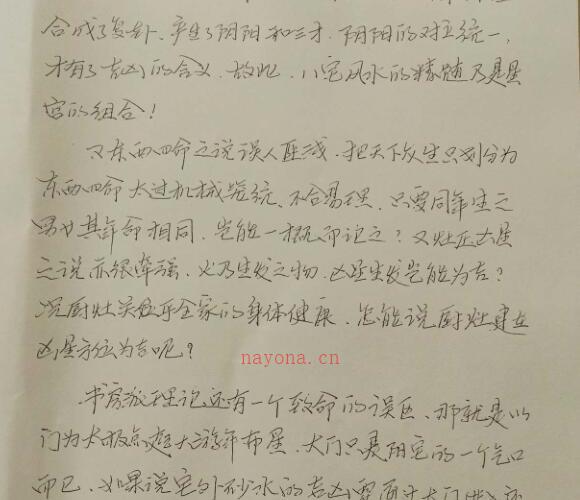 合成了复卦,产生了阴阳和三才,阴阳的对立统一,
才有了吉凶的含义,故此,八宅风水的精随乃是星
宫的组合!
又东西四命之说误人匪浅,把天下众生只划分为
东西四命太过机械笼统,不合易理,只要同年生之
男女其年命相同,岂能一概而论之?又灶压六星
之说亦很牵强,火乃生发之物,凶星生发岂能为吉?
况厨灶关乎全家的身体健康,怎能说厨灶建立
凶星方位为吉呢?
书房派理论还有一个致命的误区,那就是以
门为太极点起大游年布星,大门只是阳宅的一个气口
而已,如果说宅外砂水的吉凶要通过大门
nayona.cn